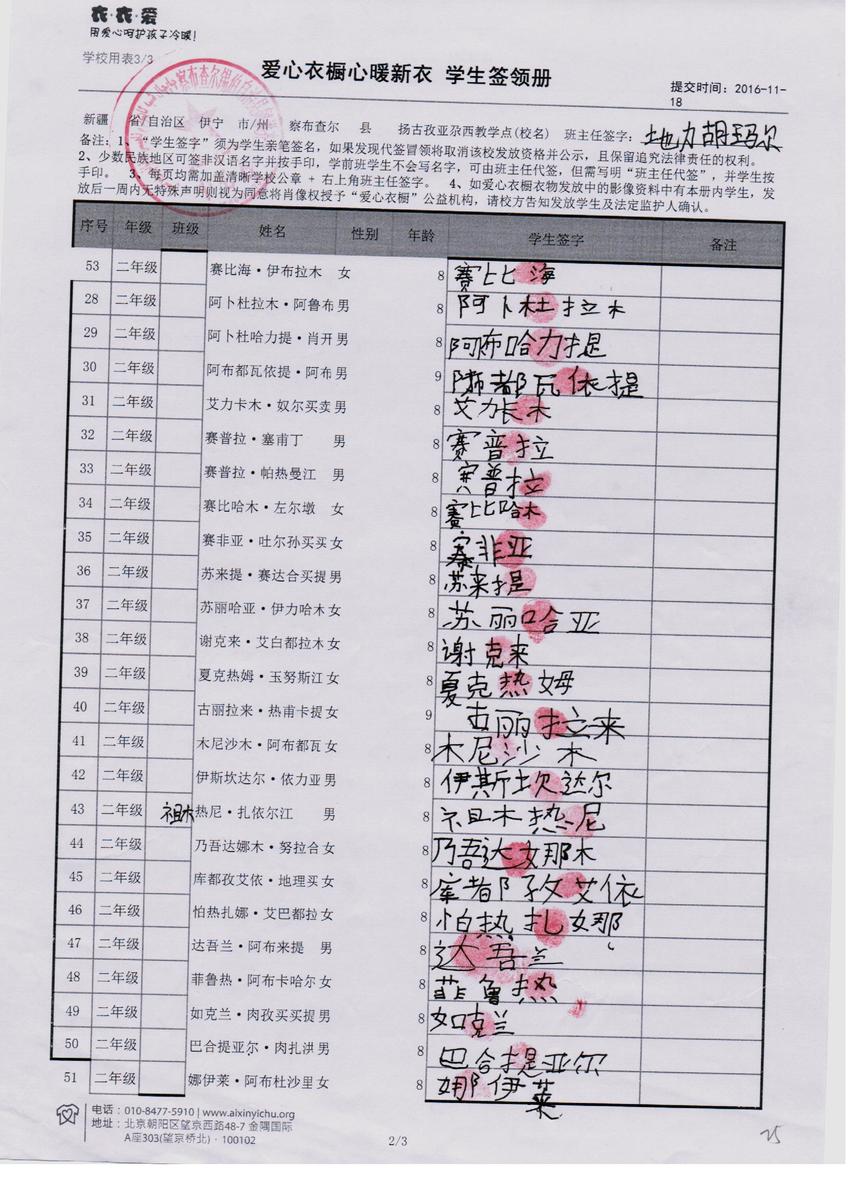 衣·衣·爱
用爱心呵护孩子冷暖!
学校用表3/3
爱心衣橱心暖新衣 学生签领册
提交时间：2016-11-
18
新疆 省/自治区 伊宁 市/州 察布查尔 县 扬古孜亚尕西教学点(校名) 班主任签字：地力胡玛尔
备注：1、“学生签字”须为学生亲笔签名，如果发现代签冒领将取消该校发放资格并公示，且保留追究法律责任的权利。
2、少数民族地区可签非汉语名字并按手印，学前班学生不会写名字，可由班主任代签，但需写明“班主任代签”，并学生按
手印。 3、每页均需加盖清晰学校公章 + 右上角班主任签字。 4、如爱心衣橱衣物发放中的影像资料中有本册内学生，发
放后一周内无特殊声明则视为同意将肖像权授予“爱心衣橱”公益机构，请校方告知发放学生及法定监护人确认。
序号 年级 班级 姓名 性别 年龄 学生签字 备注
53 二年级 赛比海·伊布拉木 女 8 赛比比海
28 二年级 阿卜杜拉木·阿鲁布 男 8 阿卜杜拉木
29 二年级 阿卜杜哈力提·肖开 男 8 阿布哈力提
30 二年级 阿布都瓦依提·阿布 男 9 都瓦依提
31 二年级 艾力卡木·奴尔买卖 男 8 艾力卡木
32 二年级 赛普拉·塞甫丁 男 8 赛普拉
33 二年级 赛普拉·帕热曼江 男 8 赛普拉
34 二年级 赛比哈木·左尔墩 女 8 赛比哈木
35 二年级 赛非亚·吐尔孙买买 女 8 赛非亚
36 二年级 苏来提·赛达合买提 男 8 苏来提
37 二年级 苏丽哈亚·伊力哈木 女 8 苏丽哈亚
38 二年级 谢克来·艾白都拉木 女 8 谢克来
39 二年级 夏克热姆·玉努斯江 女 8 夏克热姆
40 二年级 古丽拉来·热甫卡提 女 9 古丽拉来
41 二年级 木尼沙木·阿布都瓦 女 8 木尼沙木
42 二年级 伊斯坎达尔·依力亚 男 8 伊斯坎达尔
43 二年级 祖木热尼·扎依尔江 男 8 祖木热尼
44 二年级 乃吾达娜木·努拉合 女 8 乃吾达娜木
45 二年级 库都孜艾依·地理买 女 8 库都孜艾依
46 二年级 怕热扎娜·艾巴都拉 女 8 怕热扎娜
47 二年级 达吾兰·阿布来提 男 8 达吾兰
48 二年级 菲鲁热·阿布卡哈尔 女 8 菲鲁热
49 二年级 如克兰·肉孜买买提 男 8 如克兰
50 二年级 巴合提亚尔·肉扎洪 男 8 巴合提亚尔
51 二年级 娜伊莱·阿布杜沙里 女 8 娜伊莱
电话：010-8477-5910 | www.aixinyichu.org
地址：北京朝阳区望京西路48-7 金隅国际
A座303(望京桥北)·100102
2/3
25